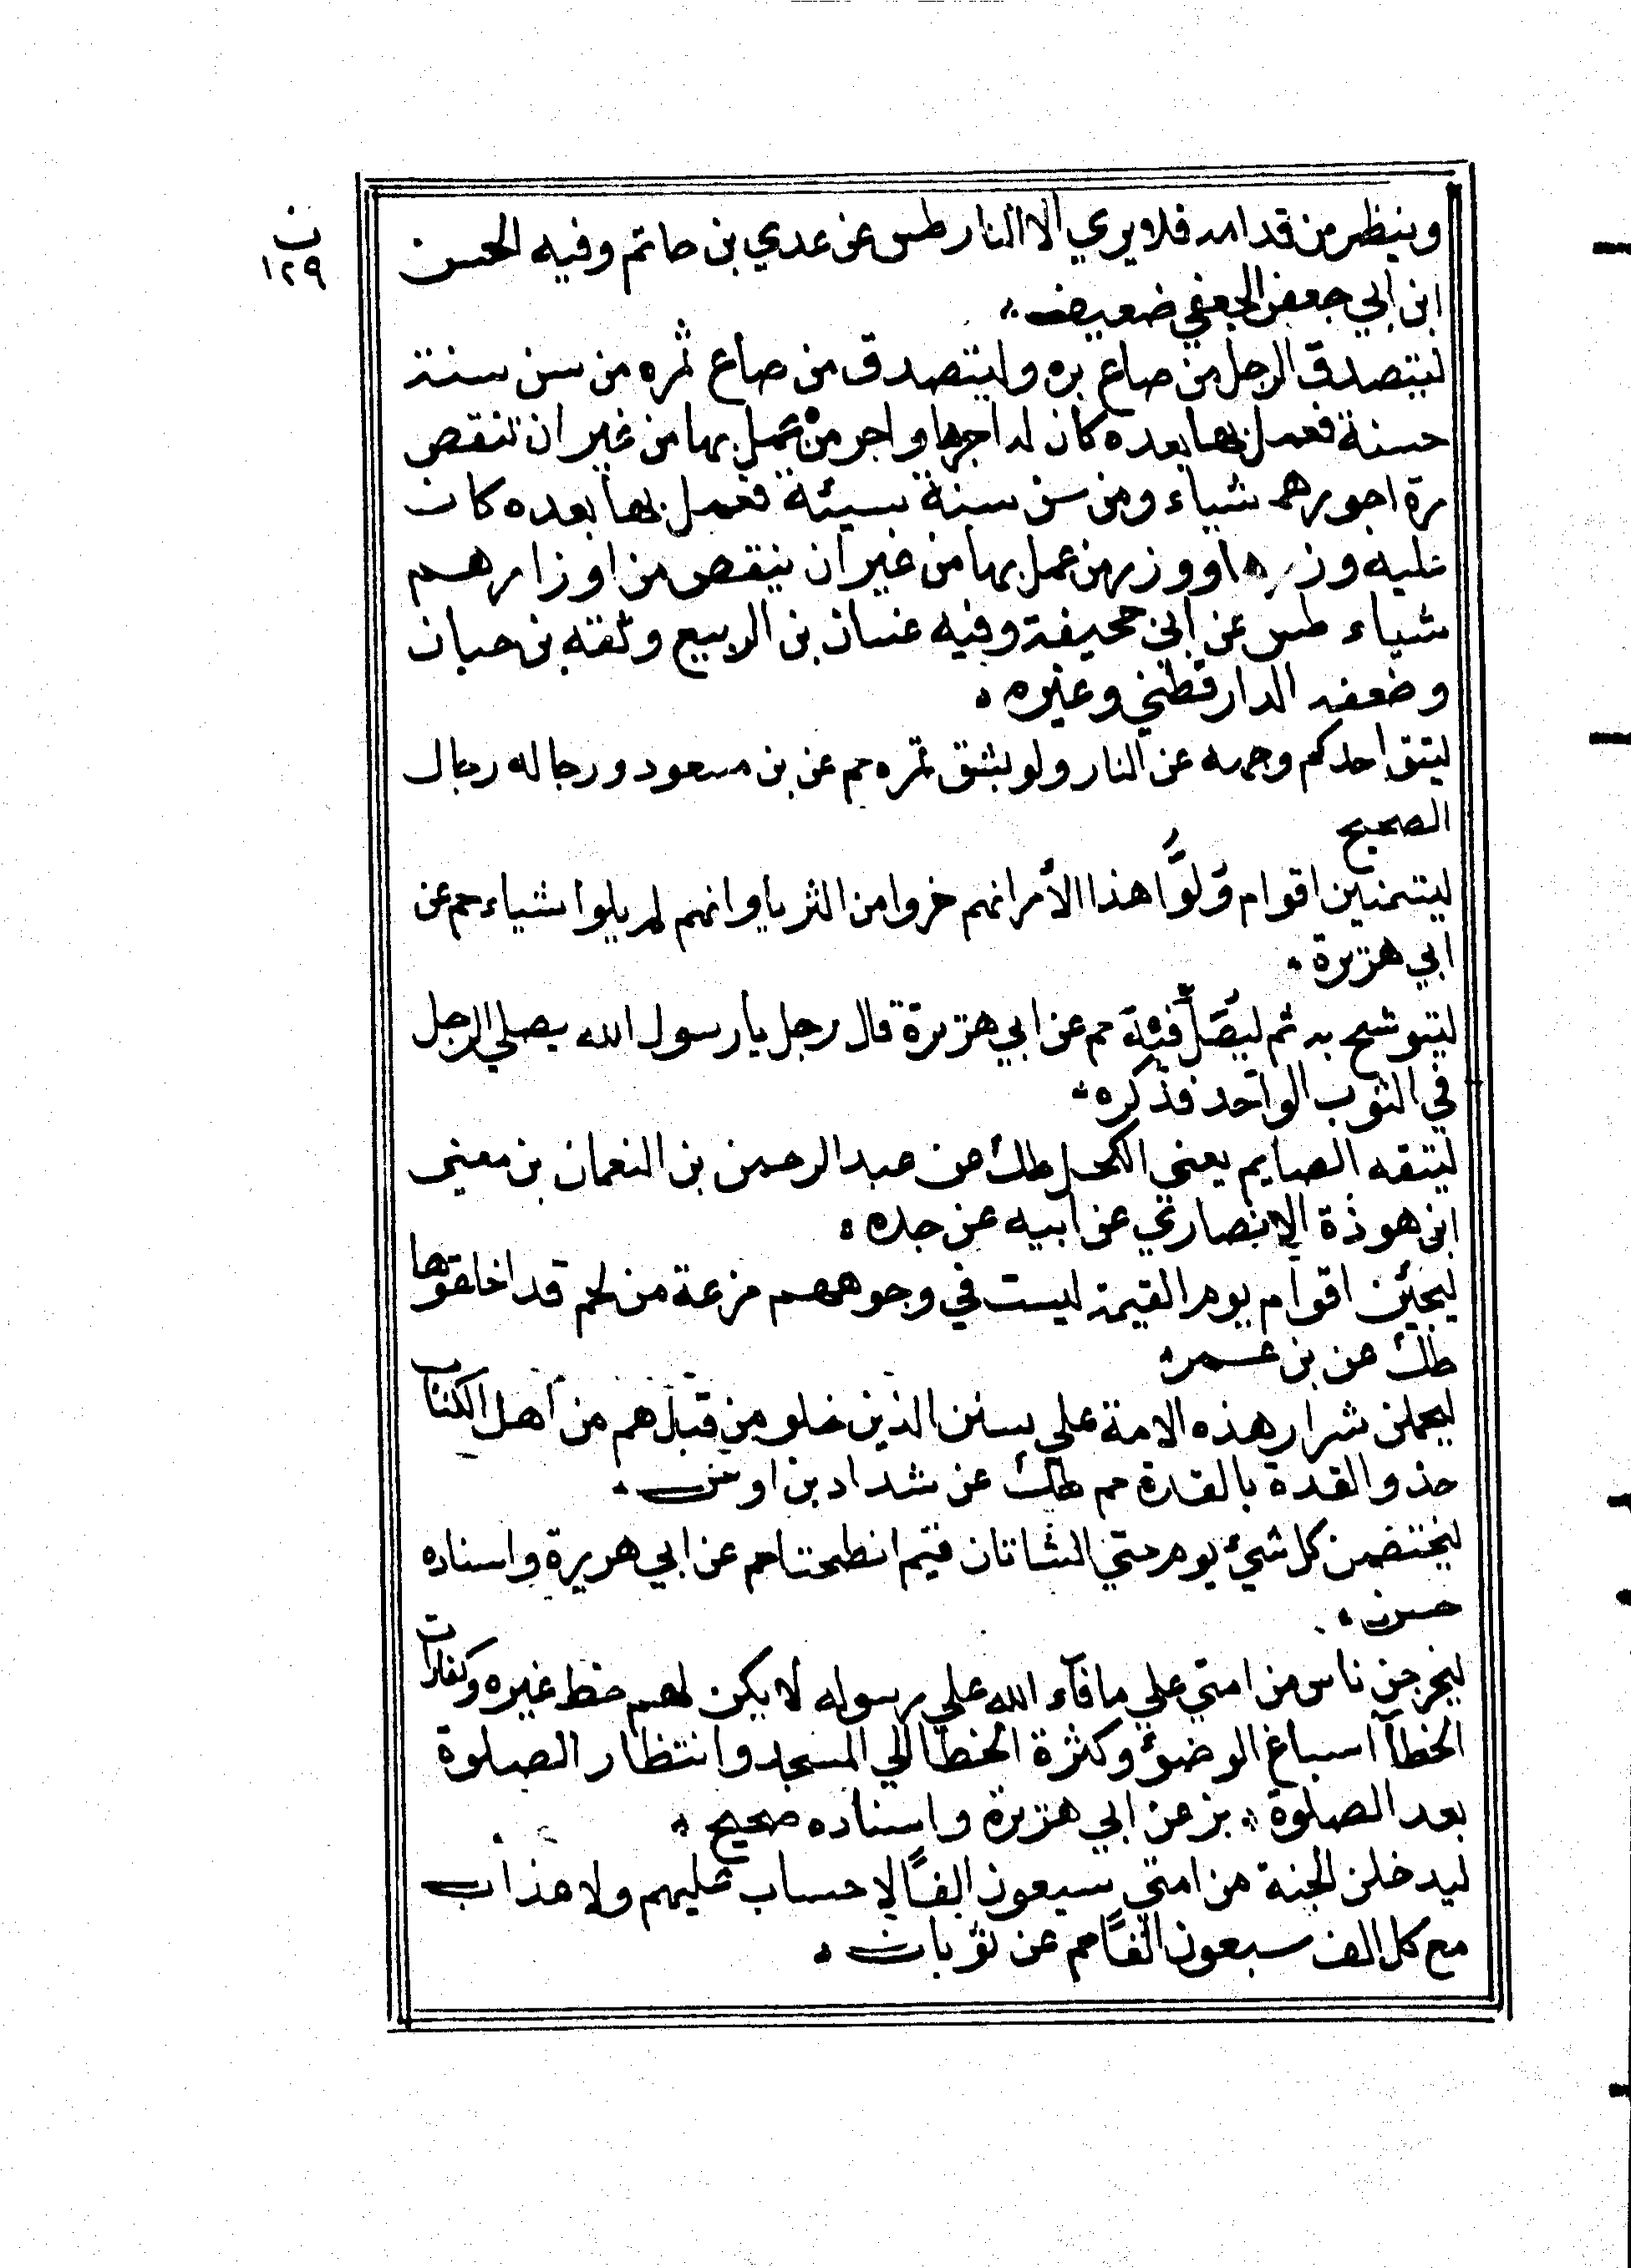 ب
١٢٩
وينظر من قدامه فلا يري الا النار طس عن عدي بن حاتم وفيه الحسن
ابن ابي جعفر الجعفي ضعيف
ليتصدق الرجل من صاع بره وليتصدق من صاع ثمره من سن سنة
حسنة فعمل بها بعده كان له اجرها واجر من عمل بها من غير ان تنقص
اجورهم شياء ومن سن سنة سيئة فعمل بها بعده كان
عليه وزرها ووزر من عمل بها من غير ان ينقص من اوزارهم
شياء طس عن ابي جحيفة وفيه غسان بن الربيع وثقه بن حبان
وضعفه الدارقطني وغيره
ليتق احدكم وجهه عن النار ولو بشق تمره حم عن بن مسعود ورجاله رجال
الصحيح
ليتمنين اقوام وَلَوَّا هذا الأمر انهم خروا من الثريا وانهم لم يلوا شياء حم عن
ابي هريرة
ليتوشح به ثم ليصل فيه حم عن ابي هريرة قال رجل يا رسول الله يصلي الرجل
في الثوب الواحد فذكره
ليتقه الصايم يعني الكحل طك عن عبد الرحمن بن النعمان بن معني
ابن هوذة الانصاري عن ابيه عن جده
ليجيئن اقوام يوم القيمة ليست في وجوههم مزعة من لحم قد اخلقوها
طك عن بن عمر
ليحملن شرار هذه الامة علي سنن الذين خلو من قبلهم من اهل الكتاب
حذو القدة بالقدة حم طك عن شداد بن اوس
ليختصمن كل شيء يوم حتي الشاتان فيم انطحتا حم عن ابي هريرة واسناده
حسن
ليخرجن ناس من امتي علي ما فآء الله علي رسوله لا يكن لهم حظ غيره وكفارات
الخطآ اسباغ الوضؤ وكثرة الخطا الي المسجد وانتظار الصلوة
بعد الصلوة بز عن ابي هريرة واسناده صحيح
ليدخلن الجنة من امتي سبعون الفًا لا حساب عليهم ولا عذاب
مع كل الف سبعون الفًا حم عن ثوبان